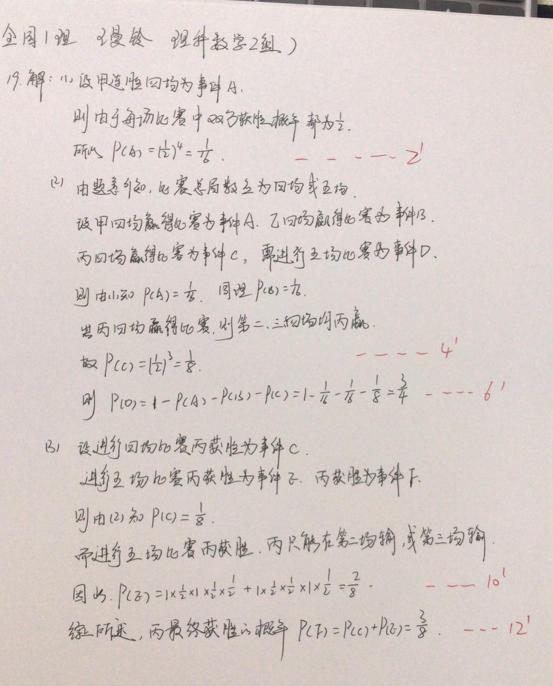 全国1理 理科数学2组)
19.解:(1)设甲连胜四场为事件A.
则由于每场比赛中双方获胜概率都为1/2.
所以 P(A)=(1/2)^4=1/16. ----- 2'
(2) 由题意可知,比赛总局数应为四场或五场.
设甲四场赢得比赛为事件A.乙四场赢得比赛为事件B.
丙四场赢得比赛为事件C,需进行五场比赛为事件D.
则由(1)知P(A)=1/16.同理P(B)=1/16.
当丙四场赢得比赛,则第二.三四场均丙赢.
故 P(C)=(1/2)^3=1/8. ---- 4'
则 P(D)=1-P(A)-P(B)-P(C)=1-1/16-1/16-1/8=3/4 ---- 6'
(3) 设进行四场比赛丙获胜为事件C.
进行五场比赛丙获胜为事件E.丙获胜为事件F.
则由(2)知 P(C)=1/8.
而进行五场比赛丙获胜.丙只能在第二场输,或第三场输.
因此.P(E)=1×1/2×1×1/2×1/2+1×1/2×1/2×1×1/2=2/8. --- 10'
综上所述,丙最终获胜的概率P(F)=P(C)+P(E)=3/8. --- 12'